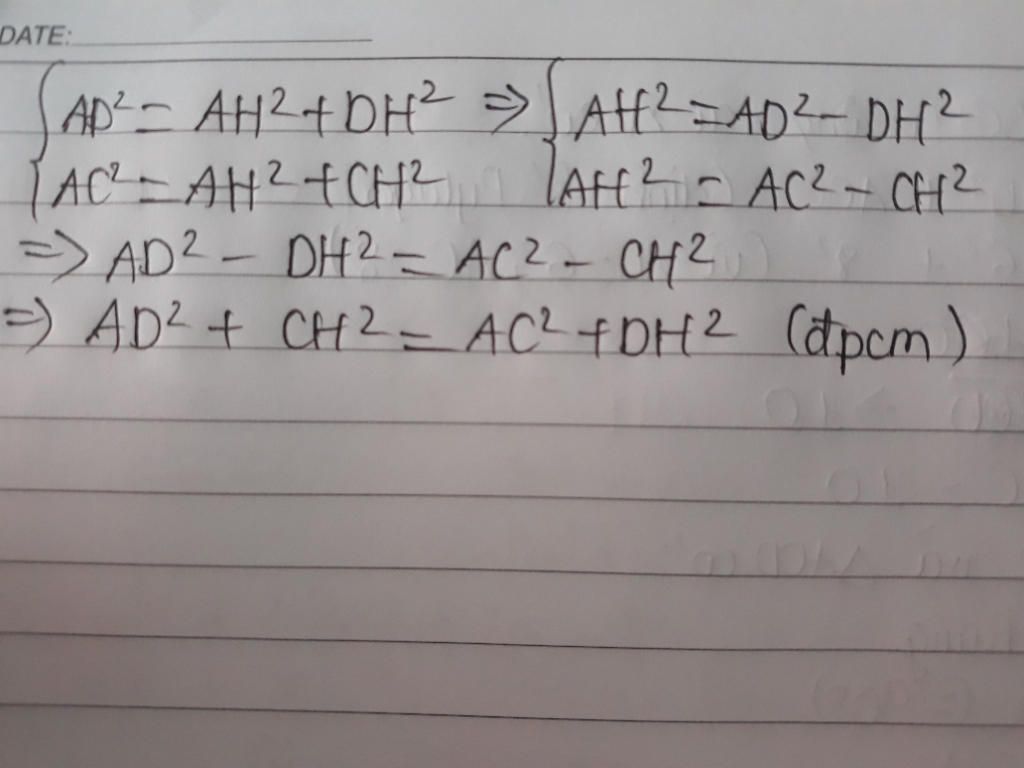 DATE:
{AD² = AH² + DH² ⇒ {AH² = AD² - DH²
{AC² = AH² + CH² {AH² = AC² - CH²
⇒ AD² - DH² = AC² - CH²
⇒ AD² + CH² = AC² + DH² (đpcm)